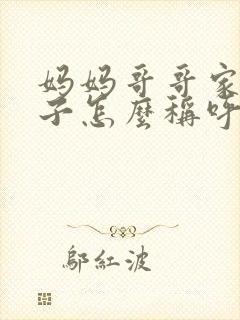 妈妈哥哥家
子怎麽稱呼
鄔紅波